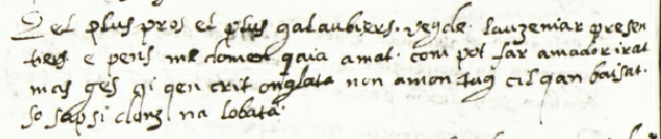 Det plus pros et plus galaubiers. Veg de lauzeniar presen
tiers e pens me domen gaia amat. com pot far amador irat
mas ges gi qen crit onglata non amon tug cil qan baisat.
so sap si donz na lobata.